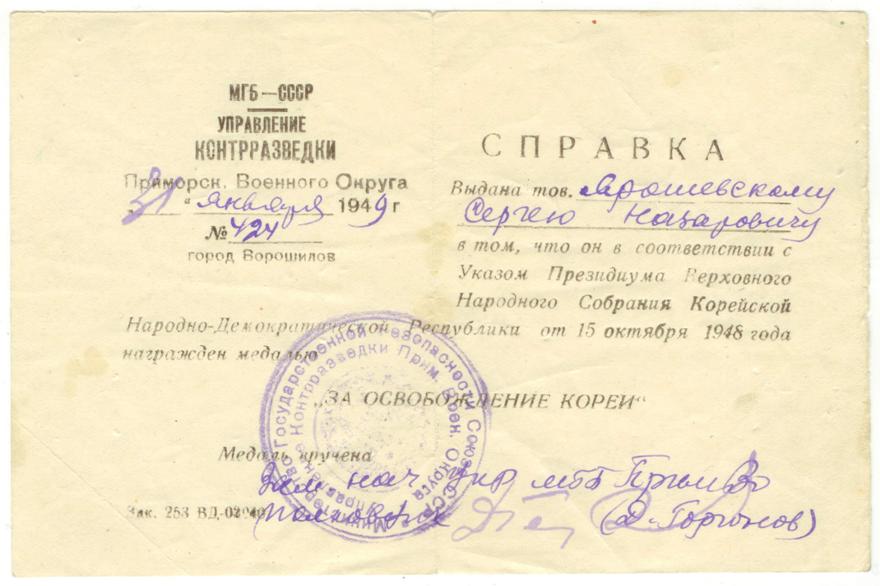 МГБ — СССР
УПРАВЛЕНИЕ
КОНТРРАЗВЕДКИ
Приморск. Военного Округа
31 " января 1949 г
№ 424
город Ворошилов
СПРАВКА
Выдана тов. Ярошевскому
Сергею Назаровичу
в том, что он в соответствии с
Указом Президиума Верховного
Народного Собрания Корейской
Народно-Демократической Республики от 15 октября 1948 года
награжден медалью
„ЗА ОСВОБОЖДЕНИЕ КОРЕИ“
Медаль вручена
Зам нач Упр мгб ПримВо
полковник (Д. Горгонов)
Зак. 253 ВД-02
Министерство Государственной Безопасности Союза ССР
Управление Контрразведки Прим. Воен. Округа